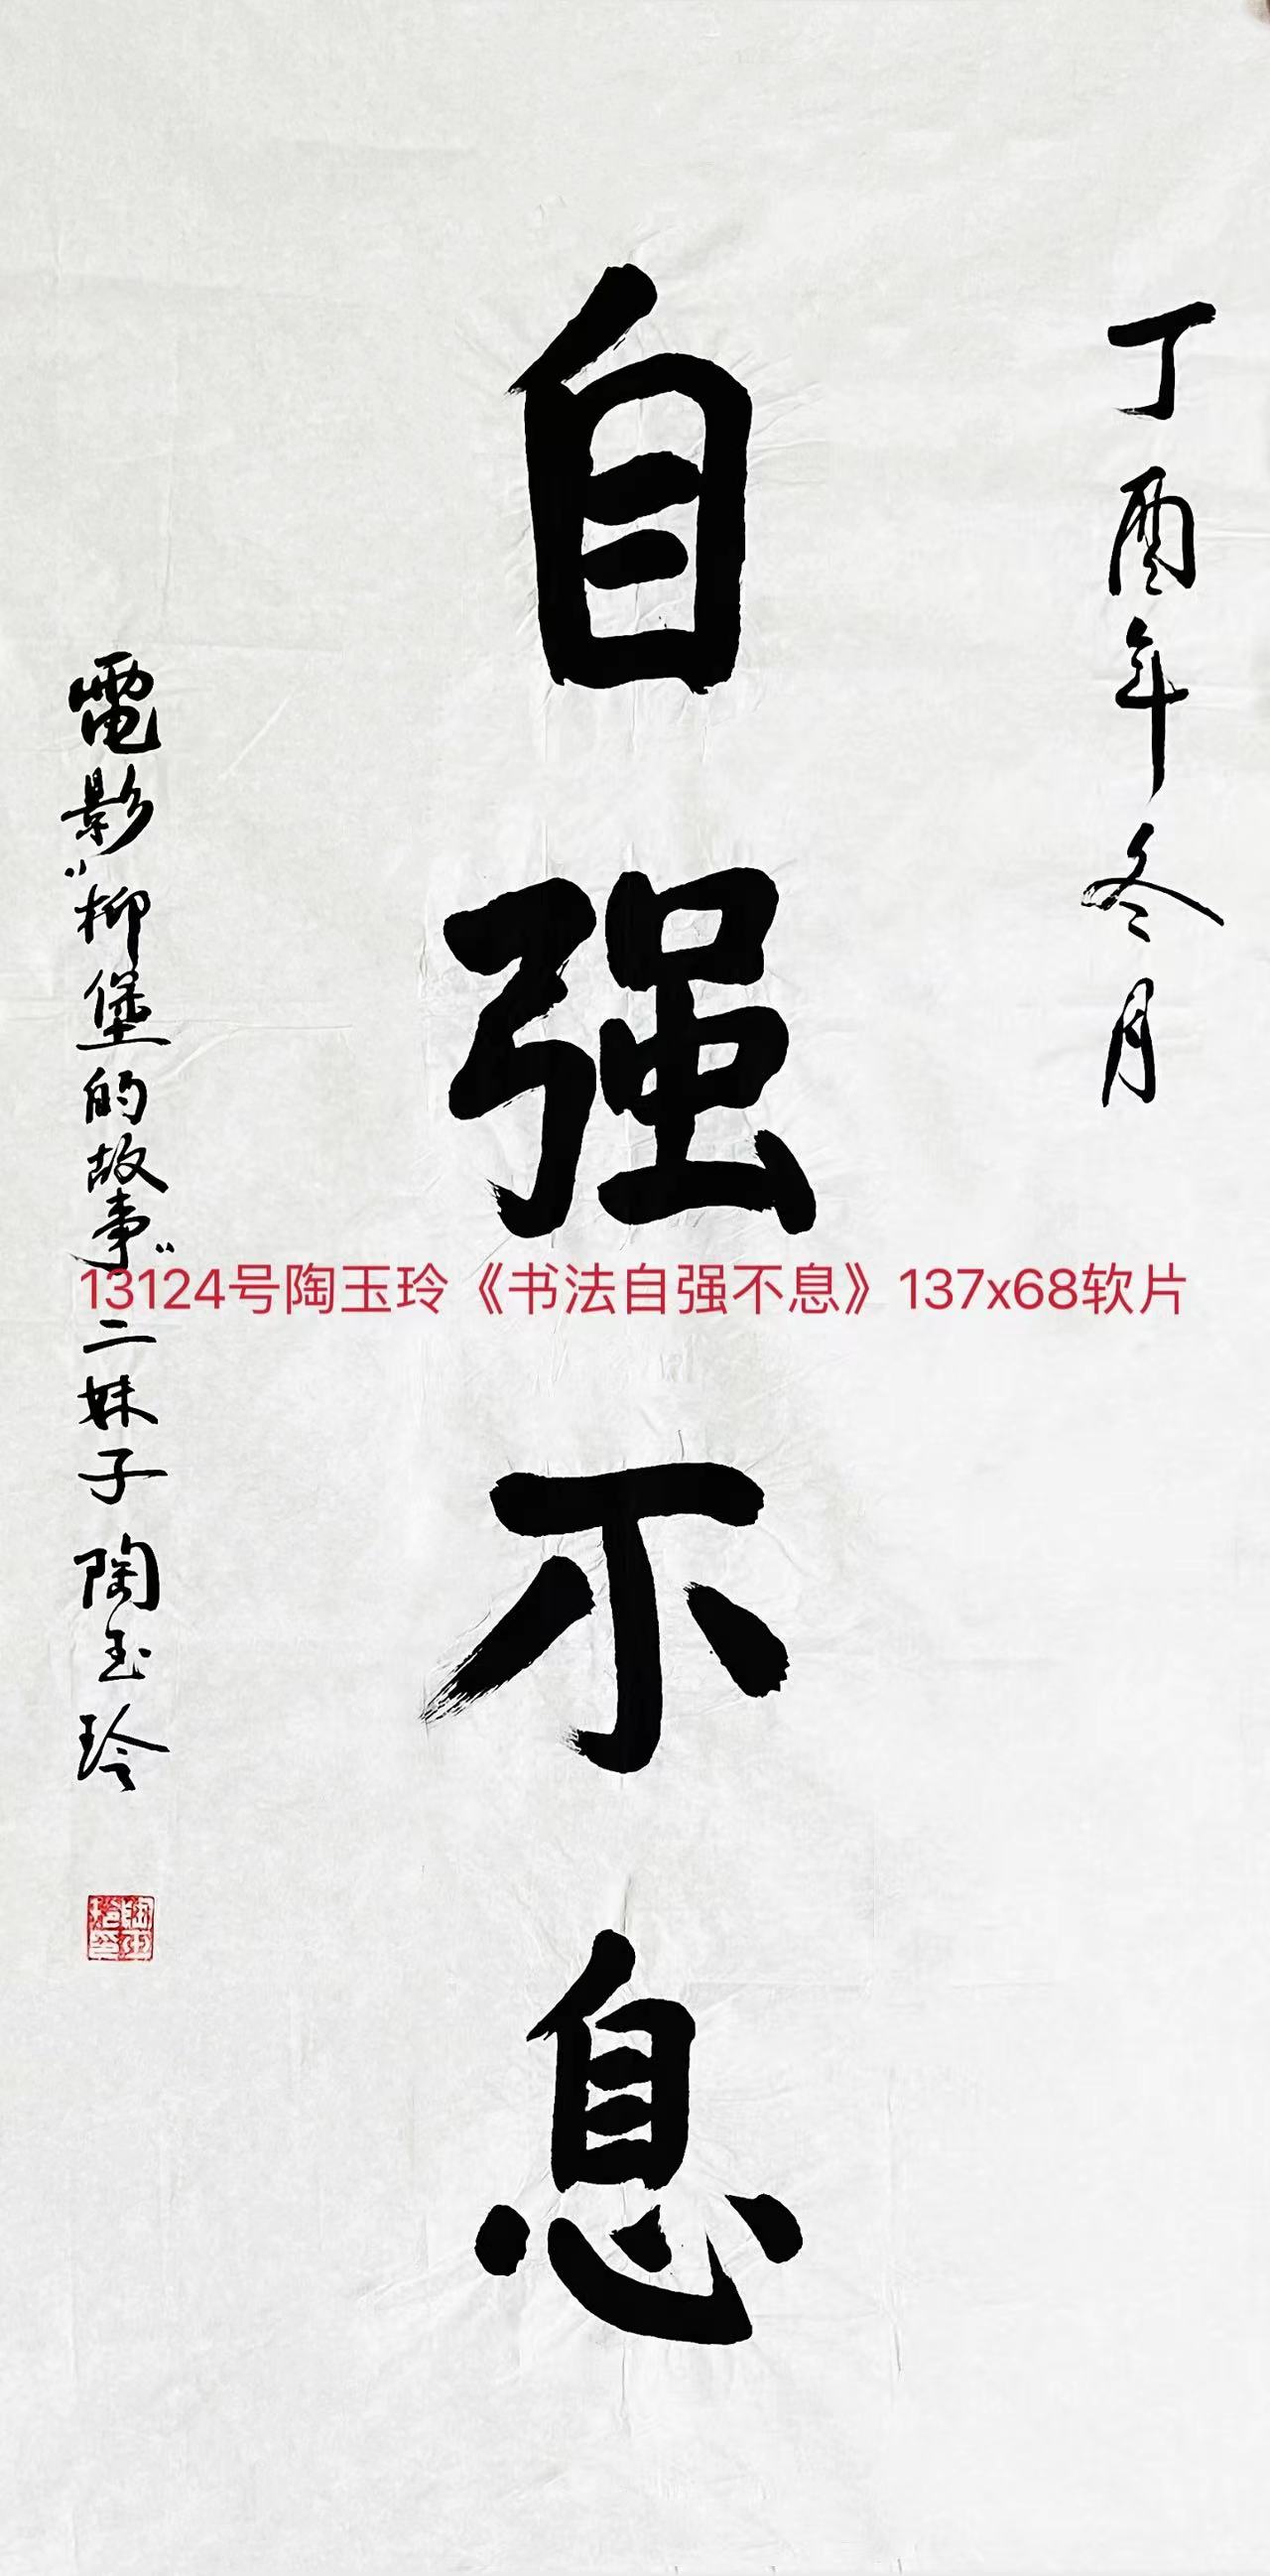 丁酉年冬月
自强不息
電影"柳堡的故事"二妹子 陶玉玲
13124号陶玉玲《书法自强不息》137x68软片
陶玉玲印